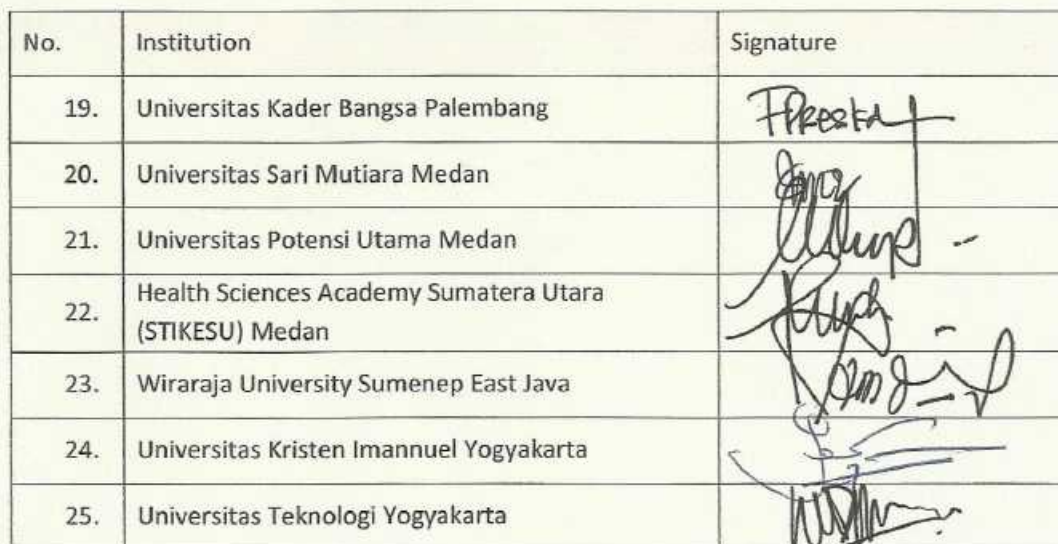 No. Institution Signature
19. Universitas Kader Bangsa Palembang
20. Universitas Sari Mutiara Medan
21. Universitas Potensi Utama Medan
22. Health Sciences Academy Sumatera Utara
(STIKESU) Medan
23. Wiraraja University Sumenep East Java
24. Universitas Kristen Imannuel Yogyakarta
25. Universitas Teknologi Yogyakarta